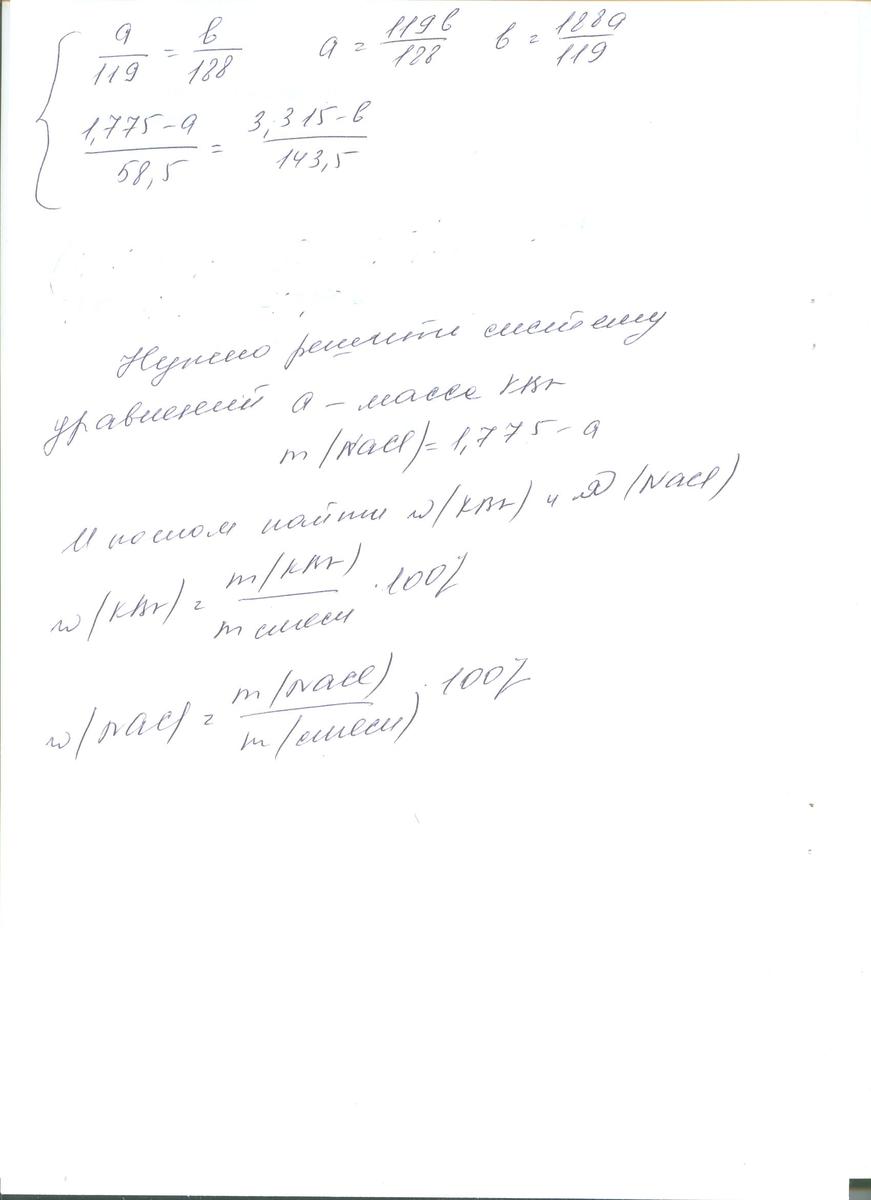 a/119 = b/188 a = 119b/188 b = 188a/119
1,775-a/58,5 = 3,315-b/143,5
Нужно решить систему
уравнений a - масса KBr
m(NaCl) = 1,775-a
И потом найти w(KBr) и w(NaCl)
w(KBr) = m(KBr)/m смеси · 100%
w(NaCl) = m(NaCl)/m(смеси) · 100%